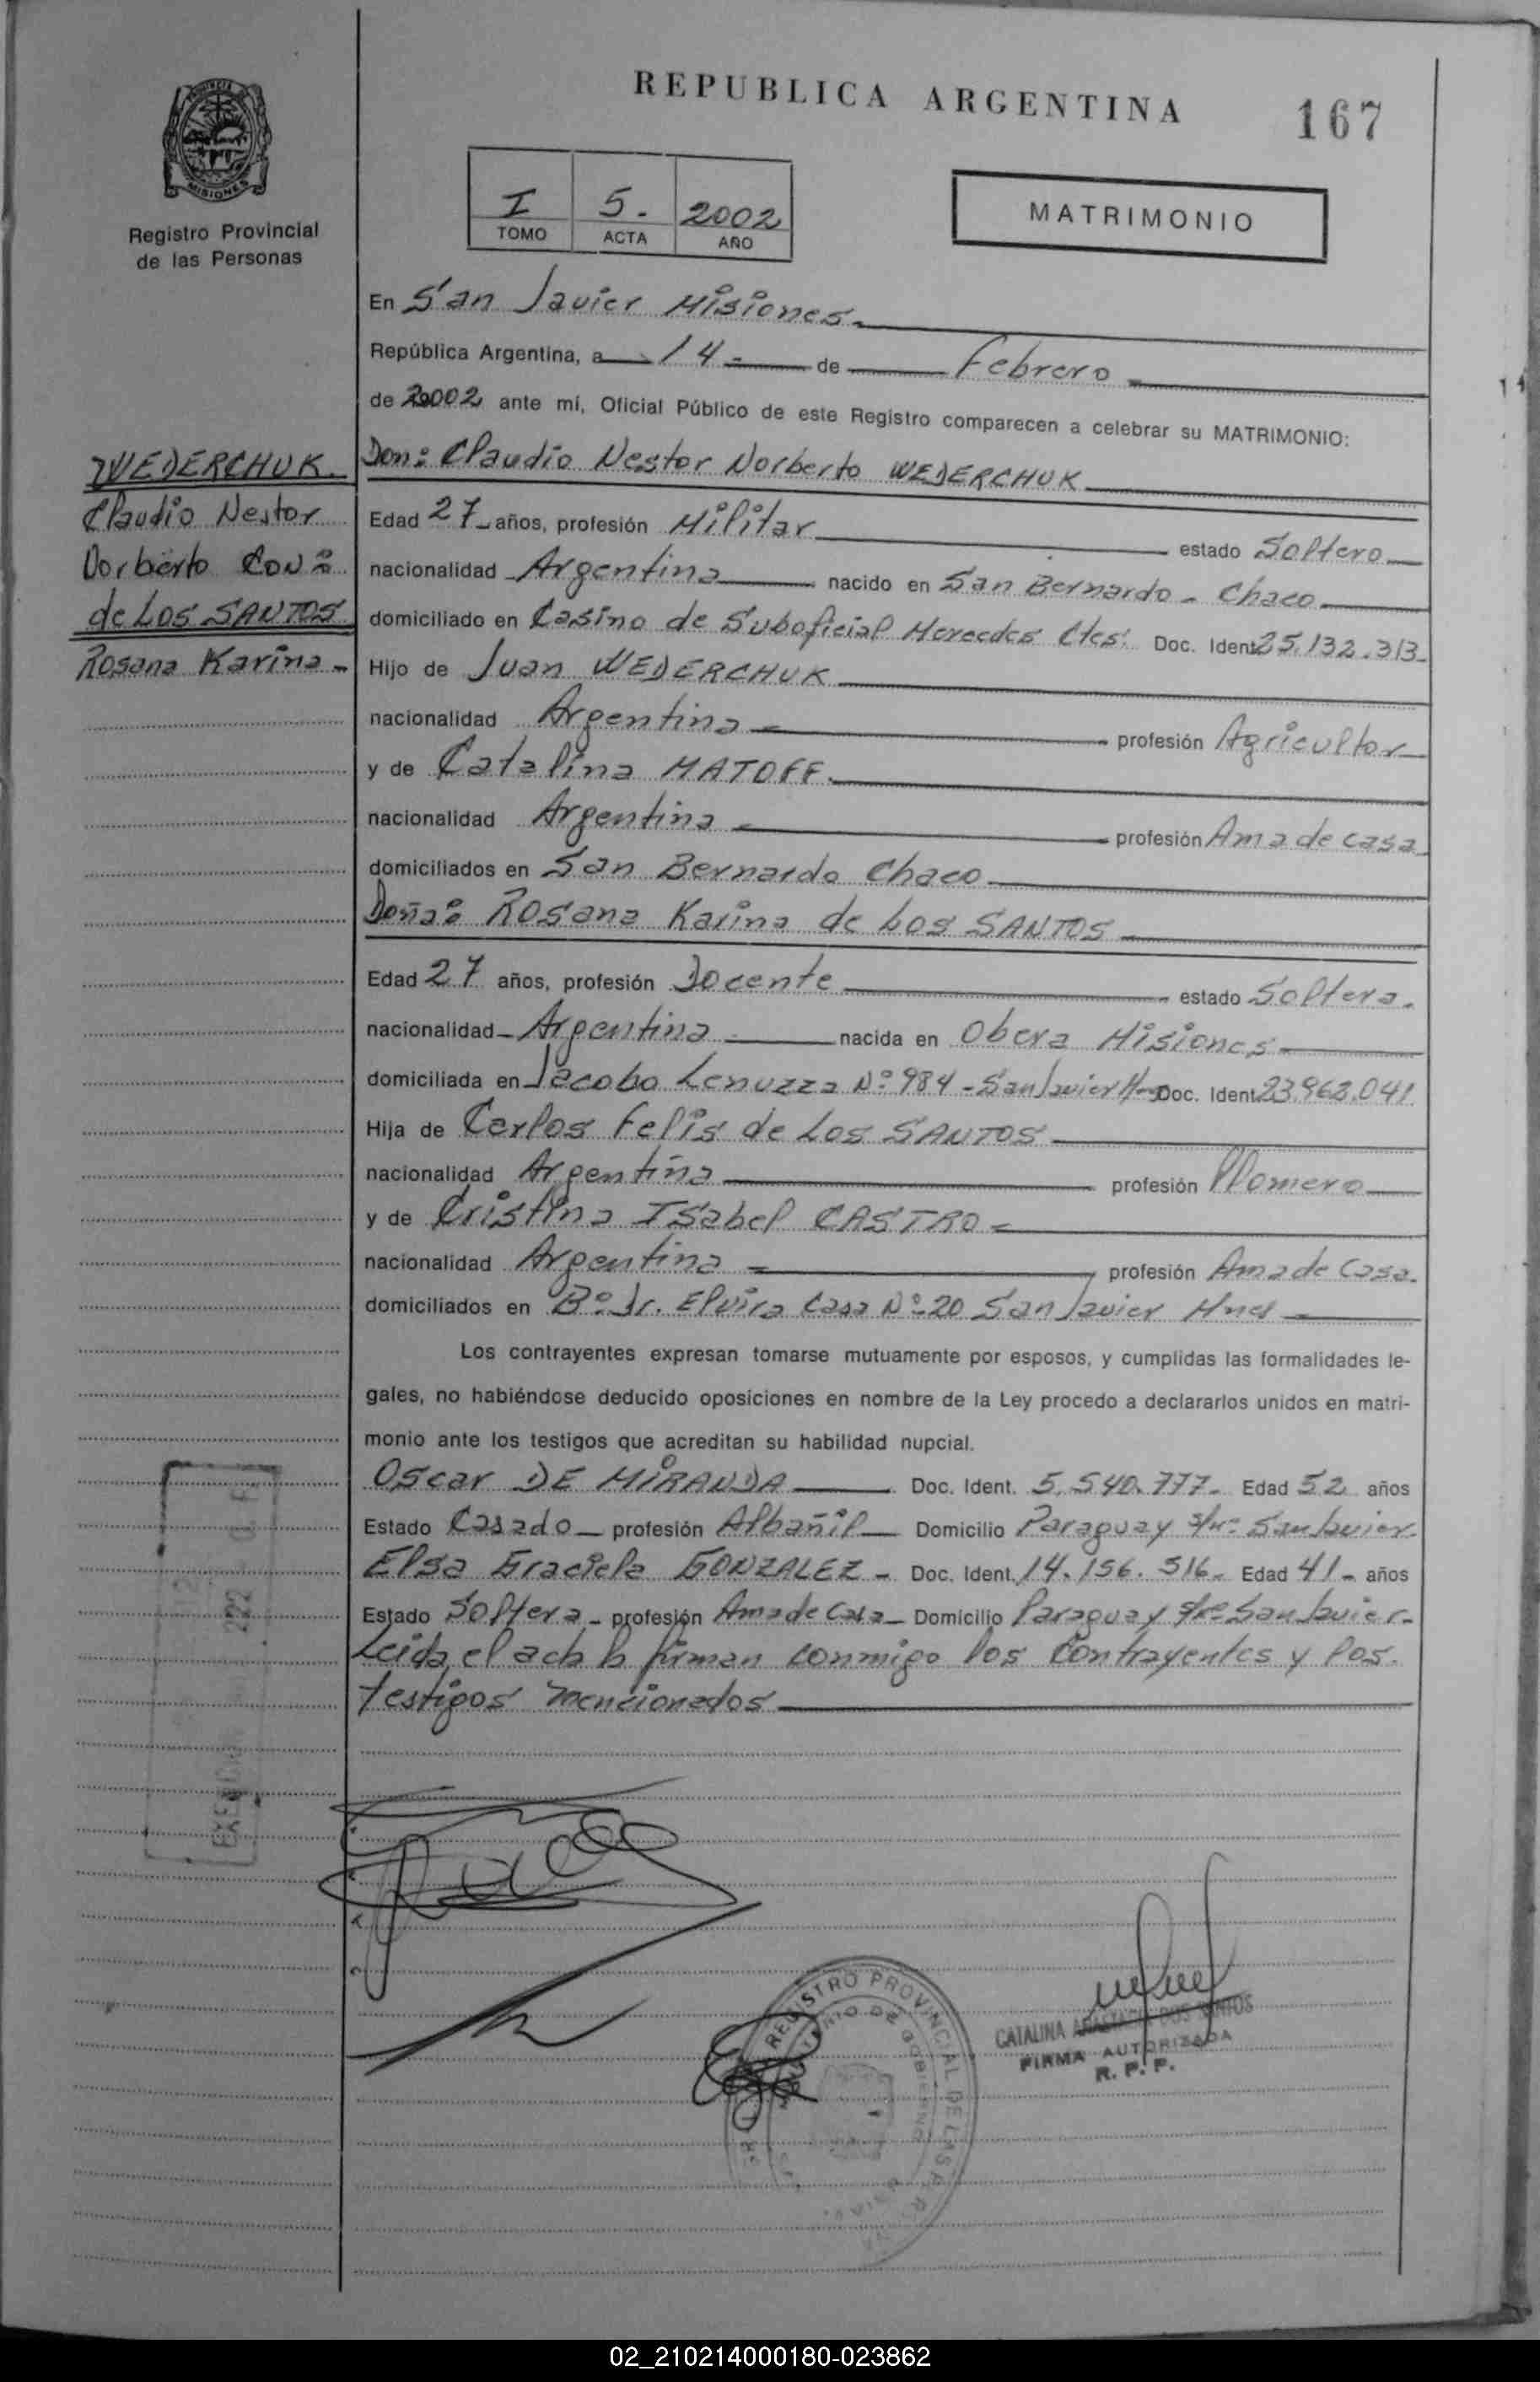 REPUBLICA ARGENTINA
167
PROVINCIA DE
MISIONES
Registro Provincial
de las Personas
I 5. 2002
TOMO ACTA AÑO
MATRIMONIO
En San Javier Misiones
República Argentina, a 14 de Febrero
de 2002 ante mí, Oficial Público de este Registro comparecen a celebrar su MATRIMONIO:
WEDERCHUK
Claudio Nestor
Norberto CON:
de LOS SANTOS
Rosana Karina
Don: Claudio Nestor Norberto WEDERCHUK
Edad 27 años, profesión Militar estado Soltero
nacionalidad Argentina nacido en San Bernardo - Chaco
domiciliado en Casino de Suboficial Mercedes Ctes. Doc. Ident. 25.132.313
Hijo de Juan WEDERCHUK
nacionalidad Argentina profesión Agricultor
y de Catalina MATOFF
nacionalidad Argentina profesión Ama de casa
domiciliados en San Bernardo Chaco
Doña: Rosana Karina de Los SANTOS
Edad 27 años, profesión Docente estado Soltera.
nacionalidad Argentina nacida en Obera Misiones
domiciliada en Jacobo Lenuzza Nº 984 - San Javier Doc. Ident. 23.962.041
Hija de Carlos Felis de Los SANTOS
nacionalidad Argentina profesión Plomero
y de Cristina Isabel CASTRO
nacionalidad Argentina profesión Ama de Casa.
domiciliados en Bº Sr. Elvira Casa Nº 20 San Javier Mnes
Los contrayentes expresan tomarse mutuamente por esposos, y cumplidas las formalidades le-
gales, no habiéndose deducido oposiciones en nombre de la Ley procedo a declararlos unidos en matri-
monio ante los testigos que acreditan su habilidad nupcial.
Oscar DE MIRANDA Doc. Ident. 5.540.777. Edad 52 años
Estado Casado profesión Albañil Domicilio Paraguay s/nº San Javier
Elsa Graciela GONZALEZ - Doc. Ident. 14.156.516 Edad 41 años
Estado Soltera profesión Ama de Casa Domicilio Paraguay s/nº San Javier
Leida el acta la firman conmigo los Contrayentes y los
testigos mencionados
REGISTRO PROVINCIAL DE LAS
DE GOBIERNO
CATALINA ANASTACIA DOS SANTOS
FIRMA AUTORIZADA
R. P. P.
02_210214000180-023862